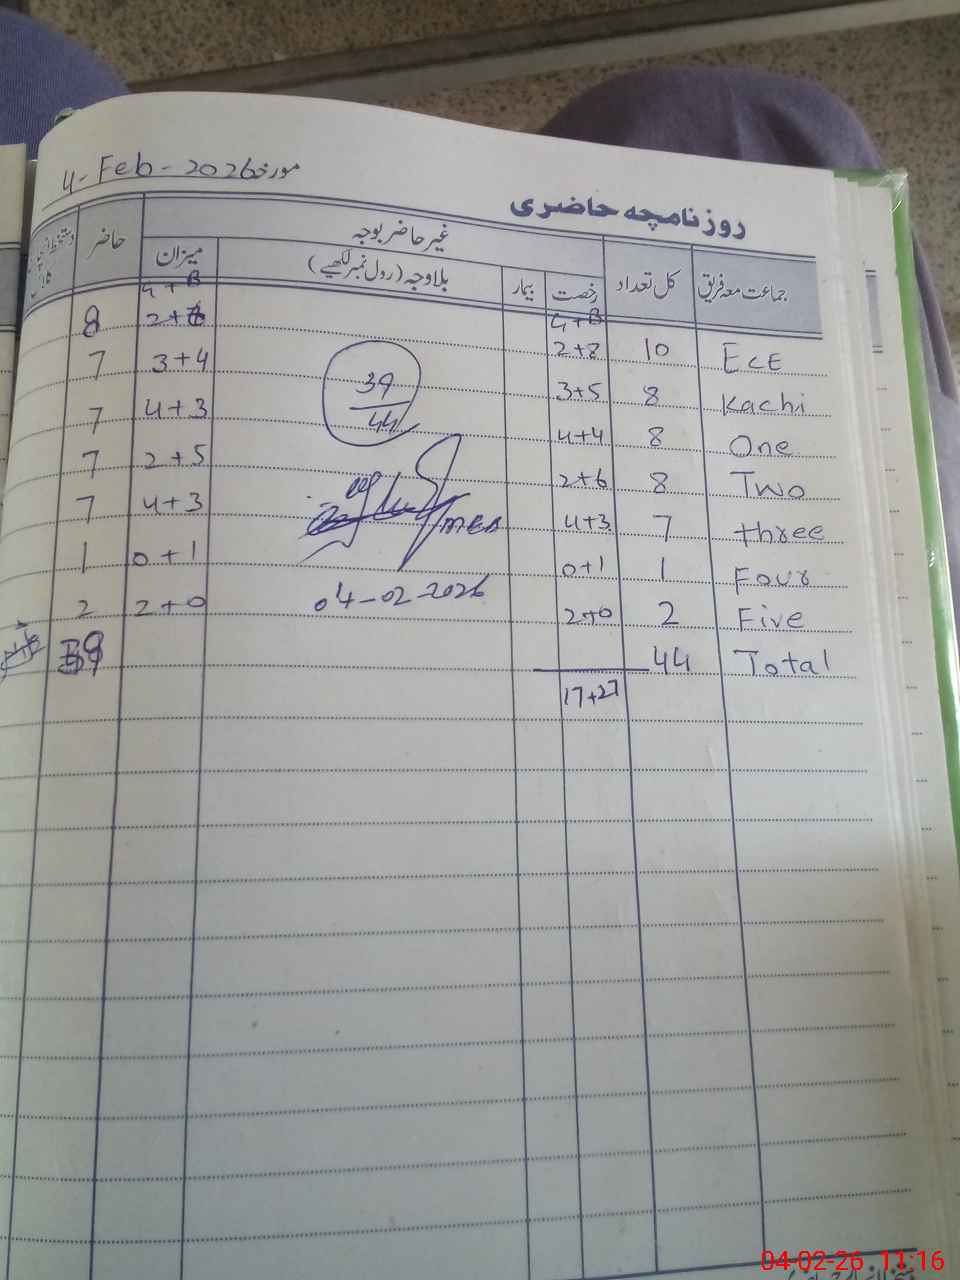 مورخہ 4-Feb-2026
روزنامچہ حاضری
جماعت معہ فریق کل تعداد غیر حاضر بوجہ حاضر
رخصت بیمار بلاوجہ (رول نمبر لکھیے) میزان
G+B G+B
ECE 10 2+8 2+6 8
Kachi 8 3+5 3+4 7
One 8 4+4 4+3 7
Two 8 2+6 2+5 7
three 7 4+3 4+3 7
Four 1 0+1 0+1 1
Five 2 2+0 2+0 2
Total 44 39
17+27
39
44
MEA
04-02-2026
04-02-26 11:16